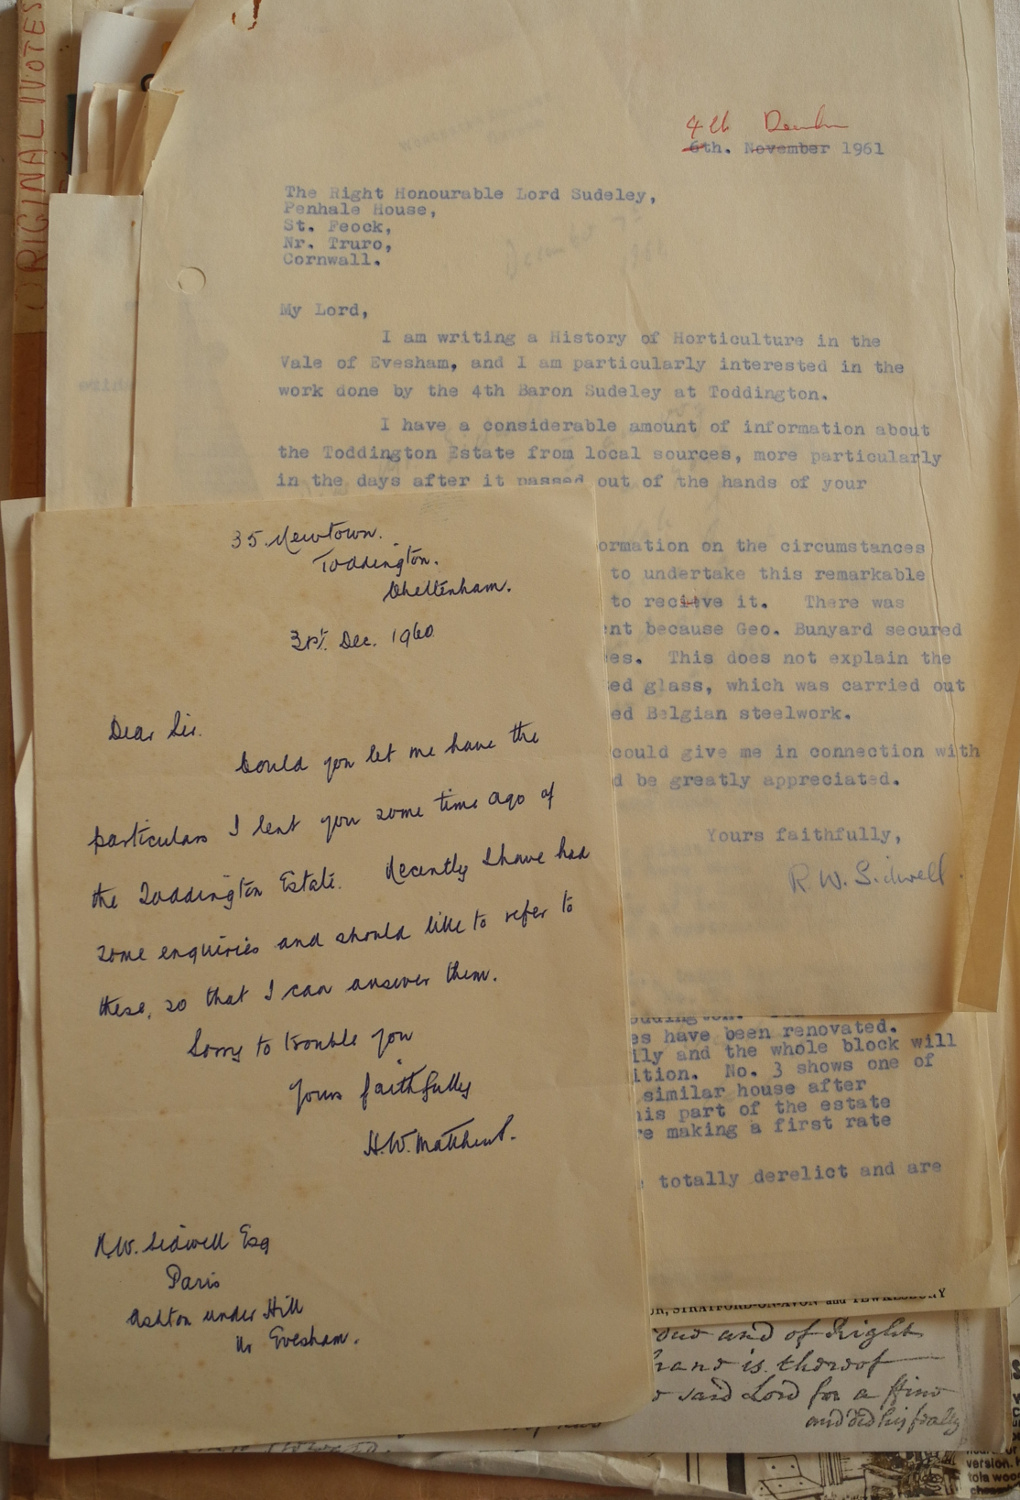 ORIGINAL NOTES
4th
6th. November 1961
The Right Honourable Lord Sudeley,
Penhale House,
St. Feock,
Nr. Truro,
Cornwall.
My Lord,
I am writing a History of Horticulture in the
Vale of Evesham, and I am particularly interested in the
work done by the 4th Baron Sudeley at Toddington.
I have a considerable amount of information about
the Toddington Estate from local sources, more particularly
in the days after it passed out of the hands of your
ormation on the circumstances
to undertake this remarkable
to recieve it. There was
nt because Geo. Bunyard secured
es. This does not explain the
ed glass, which was carried out
ed Belgian steelwork.
could give me in connection with
d be greatly appreciated.
Yours faithfully,
R. W. Sidwell.
35 Newtown.
Toddington.
Cheltenham.
31st. Dec. 1960
Dear Sir.
Could you let me have the
particulars I lent you some time ago of
the Toddington Estate. Recently I have had
some enquiries and should like to refer to
these, so that I can answer them.
Sorry to trouble you
Yours faithfully
H. W. Matthews.
R. W. Sidwell Esq
Paris
Ashton under Hill
Nr Evesham.
es have been renovated.
ily and the whole block will
ition. No. 3 shows one of
similar house after
his part of the estate
re making a first rate
totally derelict and are
STRATFORD-ON-AVON and TEWKESBURY
and of Right
is thereof
said Lord for a
version.